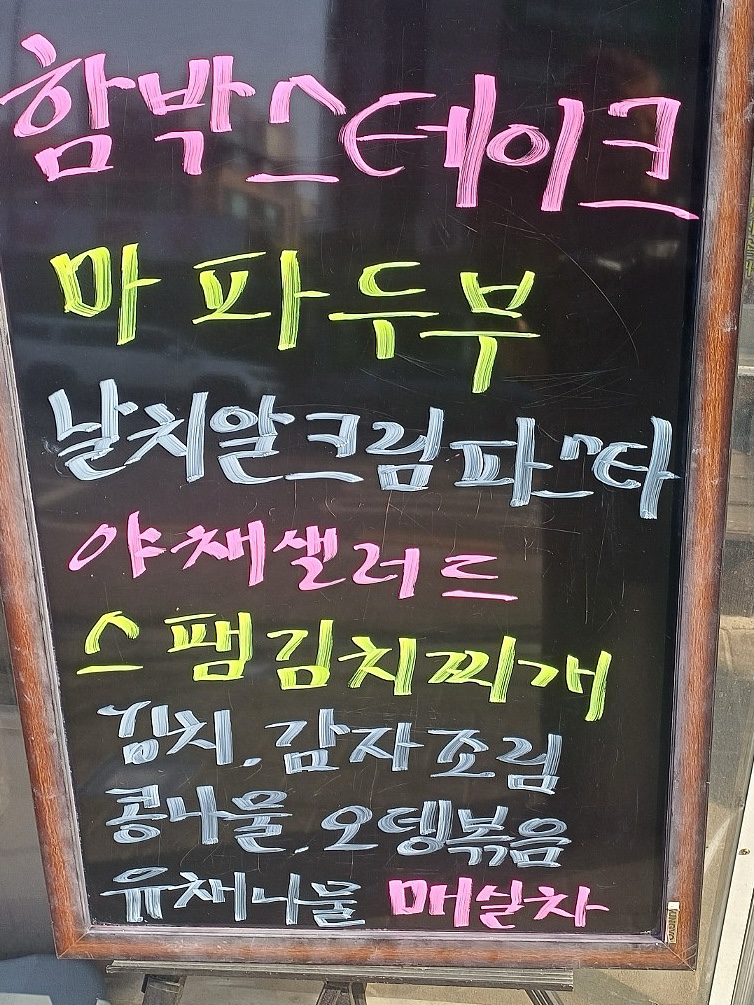 함박스테이크
마파두부
날치알크림파스타
야채샐러드
스팸김치찌개
김치.감자조림
콩나물.오뎅볶음
유채나물 매실차